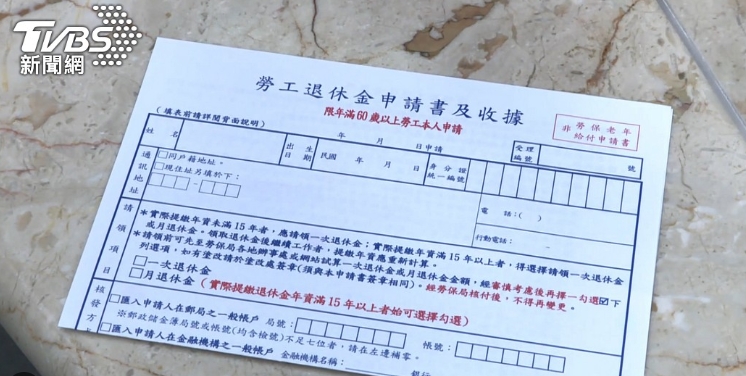 TVBS
新聞網
勞工退休金申請書及收據
限年滿60歲以上勞工本人申請
非勞保老年
給付申請書
(填表前請詳閱背面說明)
年 月 日申請
受理
編號
號
姓名
出生
日期
民國 年 月 日
身分證
統一編號
通訊地址
□同戶籍地址。
□現住址另填於下:
電 話:( )
行動電話:
請領項目
*實際提繳年資未滿15年者,應請領一次退休金;實際提繳年資滿15年以上者,得選擇請領一次退休金
或月退休金。領取退休金後繼續工作者,提繳年資應重新計算。
*請領前可先至勞保局各地辦事處或網站試算一次退休金或月退休金金額,經審慎考慮後再擇一勾選☑下
列選項,如有塗改請於塗改處簽章(須與本申請書簽章相同)。經勞保局核付後,不得再變更。
□一次退休金
□月退休金(實際提繳退休金年資滿15年以上者始可選擇勾選)
核發方
□匯入申請人在郵局之一般帳戶 局號: 帳號:
※郵政存簿局號或帳號(均含檢號)不足七位者,請在左邊補零。
□匯入申請人在金融機構之一般帳戶 金融機構名稱: 銀行